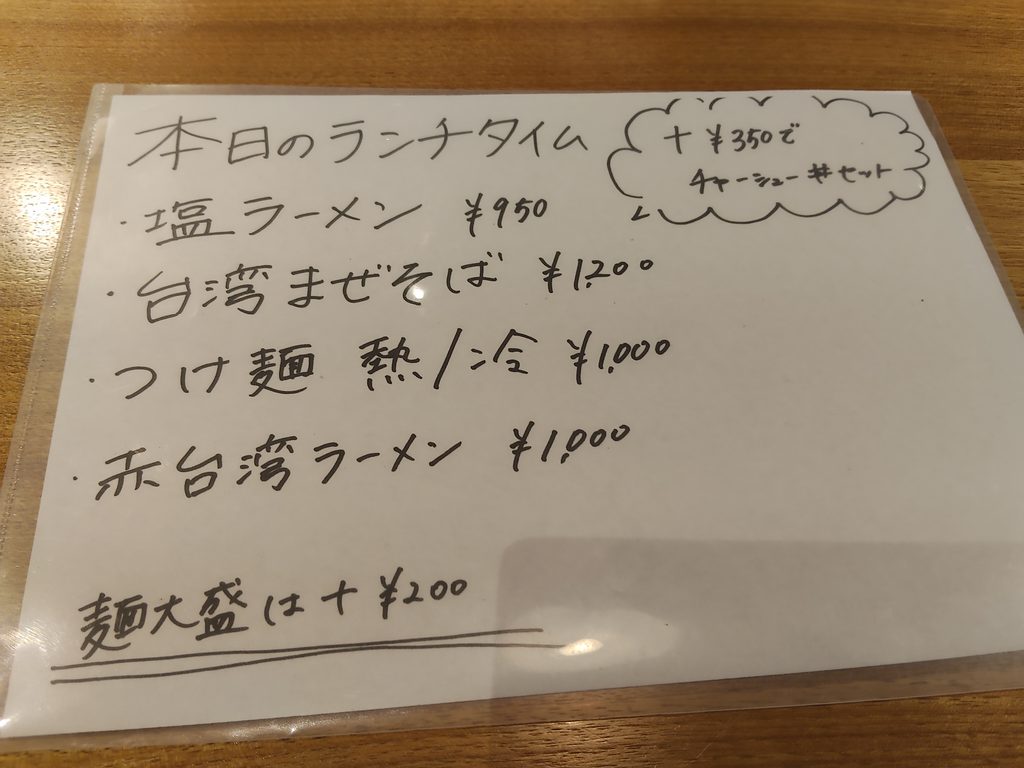 本日のランチタイム
+ ¥350で
チャーシュー丼セット
・塩ラーメン ¥950
・台湾まぜそば ¥1,200
・つけ麺 熱/冷 ¥1,000
・赤台湾ラーメン ¥1,000
麺大盛は+¥200